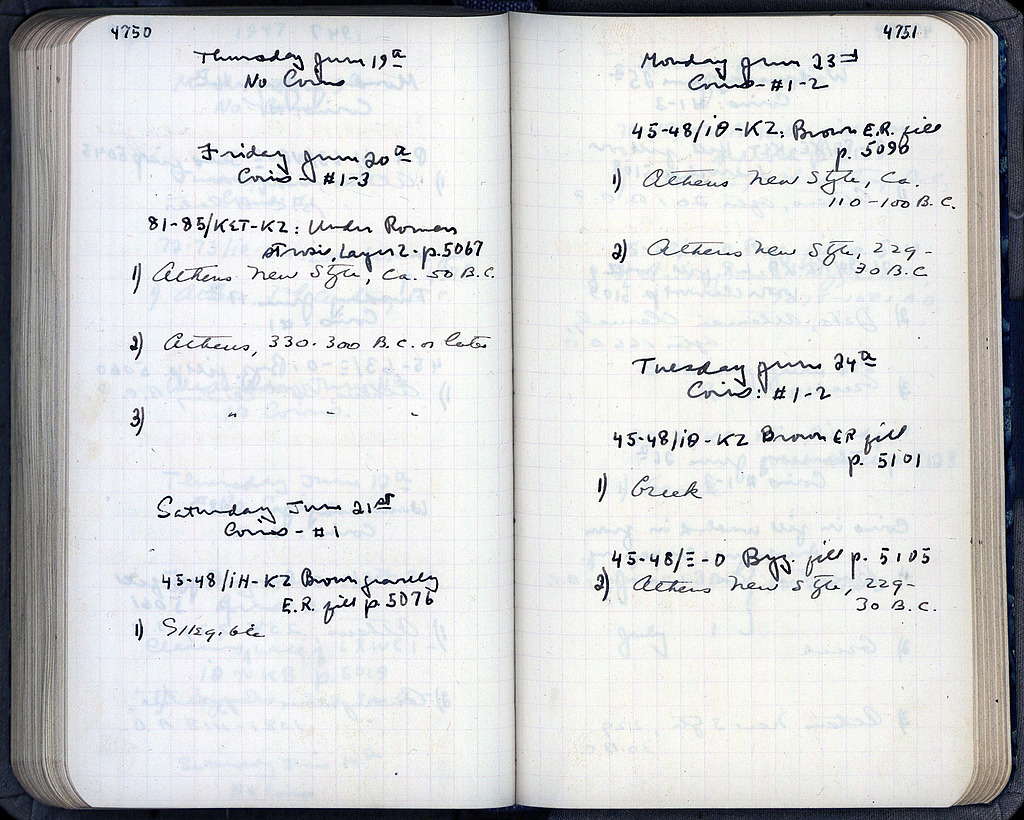 4750
Thursday June 19th
No Coins
Friday June 20th
Coins - #1-3
81-85/ΚΕΤ-ΚΖ: Under Roman
strosis, Layer 2 - p. 5067
1) Athens New Style, Ca. 50 B.C.
2) Athens, 330-300 B.C. or later
3) " " "
Saturday June 21st
Coins - #1
45-48/ΙΗ-ΚΖ Brown gravelly
E.R. fill p. 5076
1) Illegible
4751
Monday June 23rd
Coins - #1-2
45-48/ΙΘ-ΚΖ: Brown E.R. fill
p. 5090
1) Athens New Style, Ca.
110-100 B.C.
2) Athens New Style, 229-
30 B.C.
Tuesday June 24th
Coins: #1-2
45-48/ΙΘ-ΚΖ Brown ER fill
p. 5101
1) Greek
45-48/Ξ-Ο Byz. fill p. 5105
2) Athens New Style, 229-
30 B.C.